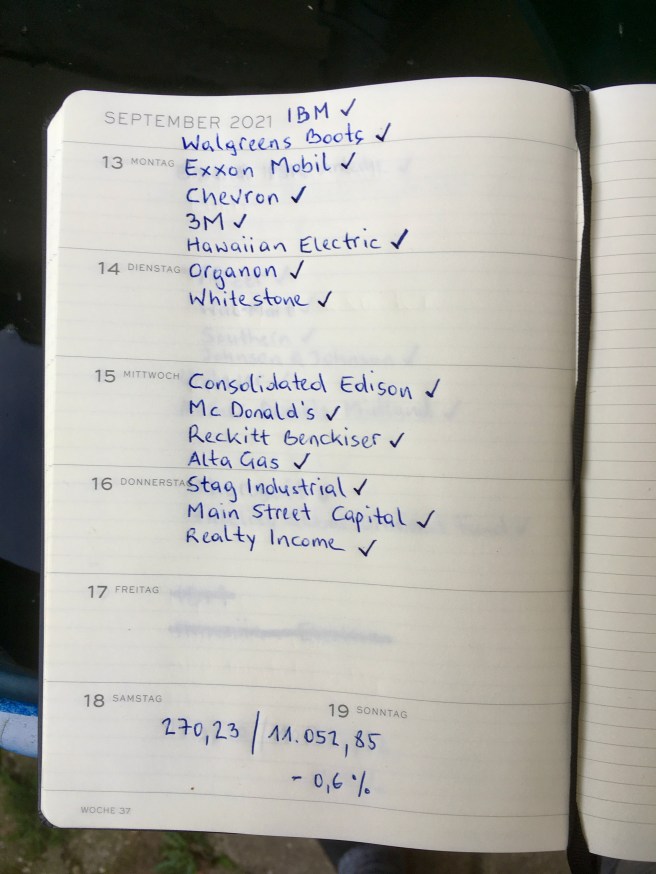 SEPTEMBER 2021 IBM ✓
Walgreens Boots ✓
13 MONTAG Exxon Mobil ✓
Chevron ✓
3M ✓
Hawaiian Electric ✓
14 DIENSTAG Organon ✓
Whitestone ✓
15 MITTWOCH Consolidated Edison ✓
Mc Donald's ✓
Reckitt Benckiser ✓
Alta Gas ✓
16 DONNERSTA Stag Industrial ✓
Main Street Capital ✓
Realty Income ✓
17 FREITAG
18 SAMSTAG
19 SONNTAG
270,23 / 11.052,85
- 0,6 %
WOCHE 37